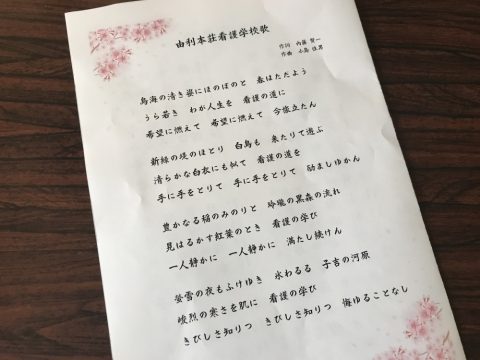 由利本荘看護学校歌
作詞　内藤 賢一
作曲　小島 佳男
鳥海の清き姿にほのぼのと　春はただよう
うら若き　わが人生を　看護の道に
希望に燃えて　希望に燃えて　今旅立たん
新緑の堤のほとり　白鳥も　来たりて遊ぶ
清らかな白衣にも似て　看護の道を
手に手をとりて　手に手をとりて　励ましゆかん
豊かなる稲のみのりと　玲瓏の黒森の流れ
見はるかす紅葉のとき　看護の学び
一人静かに　一人静かに　満たし続けん
蛍雪の夜もふけゆき　氷わるる　子吉の河原
峻烈の寒さを肌に　看護の学び
きびしさ知りつ　きびしさ知りつ　悔ゆることなし